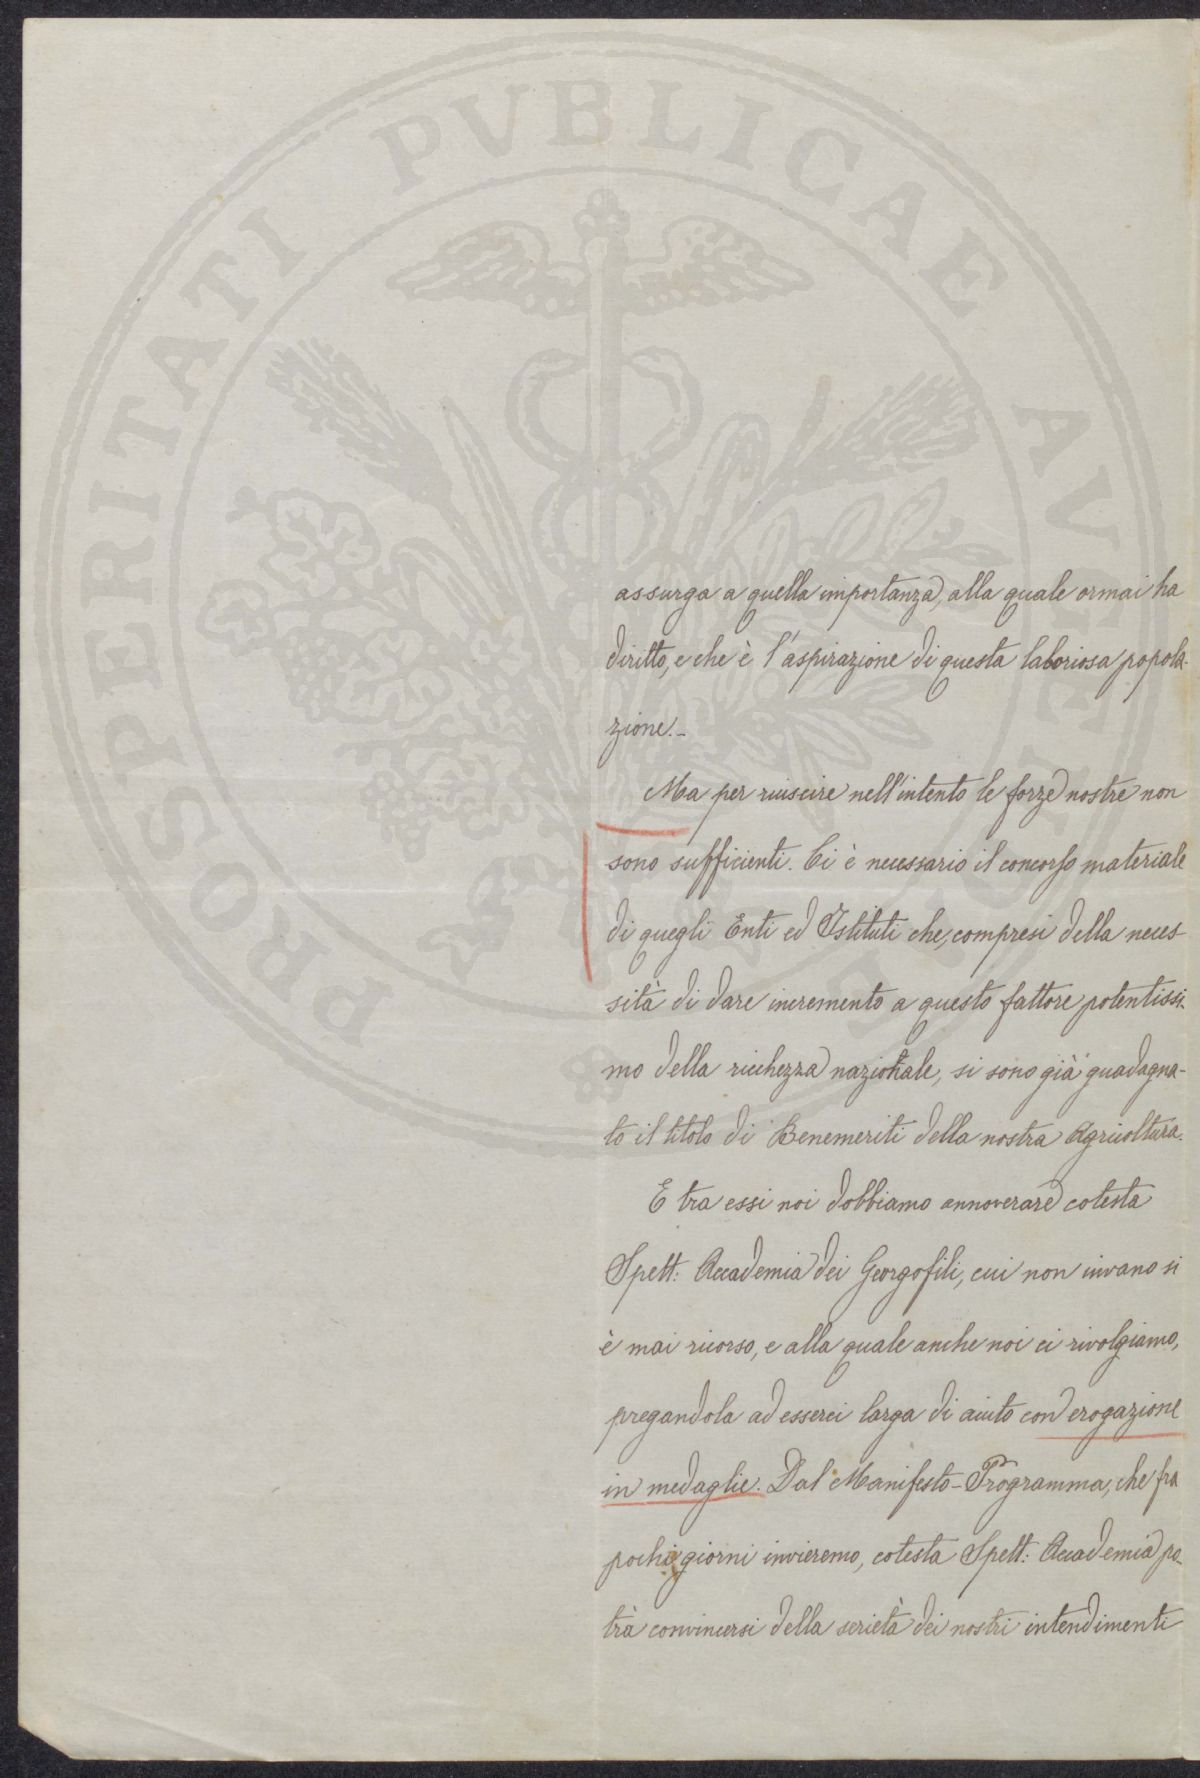 PROSPERITATI PVBLICAE AVGENDAE
assurga a quella importanza, alla quale ormai ha
diritto, e che è l'aspirazione di questa laboriosa popola-
zione.-
Ma per riuscire nell'intento le forze nostre non
sono sufficienti. Ci è necessario il concorso materiale
di quegli Enti ed Istituti che, compresi della neces-
sità di dare incremento a questo fattore potentissi-
mo della ricchezza nazionale, si sono già guadagna-
to il titolo di Benemeriti della nostra Agricoltura.
E tra essi noi dobbiamo annoverare cotesta
Spett: Accademia dei Georgofili, cui non invano si
è mai ricorso, e alla quale anche noi ci rivolgiamo,
pregandola ad esserci larga di aiuto con erogazione
in medaglie. Dal Manifesto-Programma, che fra
pochi giorni invieremo, cotesta Spett: Accademia po-
trà convincersi della serietà dei nostri intendimenti